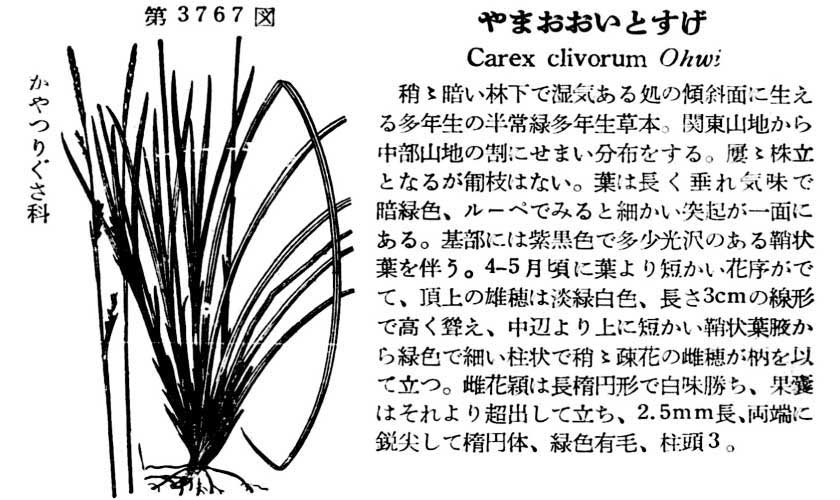 第3767図
かやつりぐさ科
やまおおいとすげ
Carex clivorum Ohwi
稍〻暗い林下で湿気ある処の傾斜面に生え
る多年生の半常緑多年生草本。関東山地から
中部山地の割にせまい分布をする。屡〻株立
となるが匍枝はない。葉は長く垂れ気味で
暗緑色、ルーペでみると細かい突起が一面に
ある。基部には紫黒色で多少光沢のある鞘状
葉を伴う。4-5月頃に葉より短かい花序がで
て、頂上の雄穂は淡緑白色、長さ3cmの線形
で高く聳え、中辺より上に短かい鞘状葉腋か
ら緑色で細い柱状で稍〻疎花の雌穂が柄を以
て立つ。雌花穎は長楕円形で白味勝ち、果嚢
はそれより超出して立ち、2.5mm長、両端に
鋭尖して楕円体、緑色有毛、柱頭3。